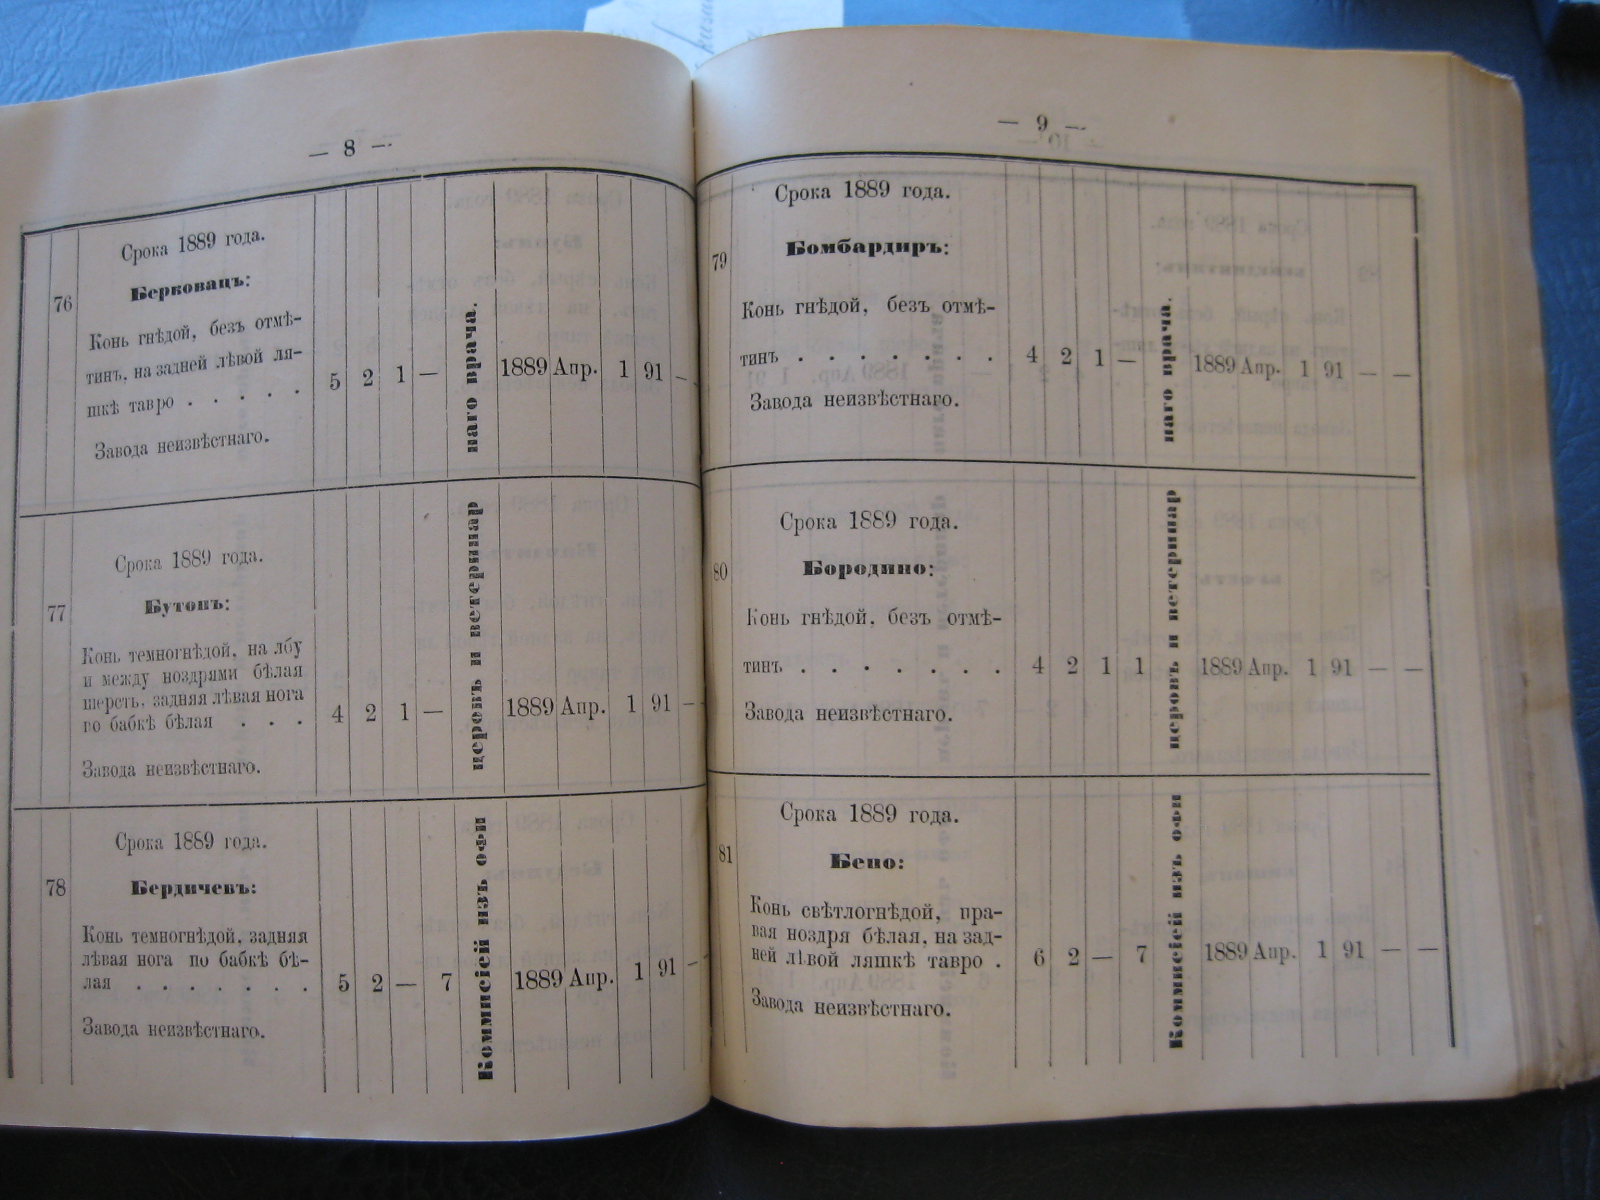 — 8 —
Срока 1889 года.
76
Берковацъ:
Конь гнѣдой, безъ отмѣ-
тинъ, на задней лѣвой ля-
шкѣ тавро . . . . . 5 2 1 — 1889 Апр. 1 91 —
Завода неизвѣстнаго.
Срока 1889 года.
77
Бутонъ:
Конь темногнѣдой, на лбу
и между ноздрями бѣлая
шерсть, задняя лѣвая нога
по бабкѣ бѣлая . . . 4 2 1 — 1889 Апр. 1 91 —
Завода неизвѣстнаго.
Срока 1889 года.
78
Бердичевъ:
Конь темногнѣдой, задняя
лѣвая нога по бабкѣ бѣ-
лая . . . . . . . 5 2 — 7 1889 Апр. 1 91 —
Завода неизвѣстнаго.
Коммисіей изъ офи
церовъ и ветеринар
наго врача.
— 9 —
Срока 1889 года.
79
Бомбардиръ:
Конь гнѣдой, безъ отмѣ-
тинъ . . . . . . . 4 2 1 — 1889 Апр. 1 91 — —
Завода неизвѣстнаго.
Срока 1889 года.
80
Бородино:
Конь гнѣдой, безъ отмѣ-
тинъ . . . . . . . 4 2 1 1 1889 Апр. 1 91 — —
Завода неизвѣстнаго.
Срока 1889 года.
81
Бено:
Конь свѣтлогнѣдой, пра-
вая ноздря бѣлая, на зад-
ней лѣвой ляшкѣ тавро . 6 2 — 7 1889 Апр. 1 91 — —
Завода неизвѣстнаго.
Коммисіей изъ офи
церовъ и ветеринар
наго врача.